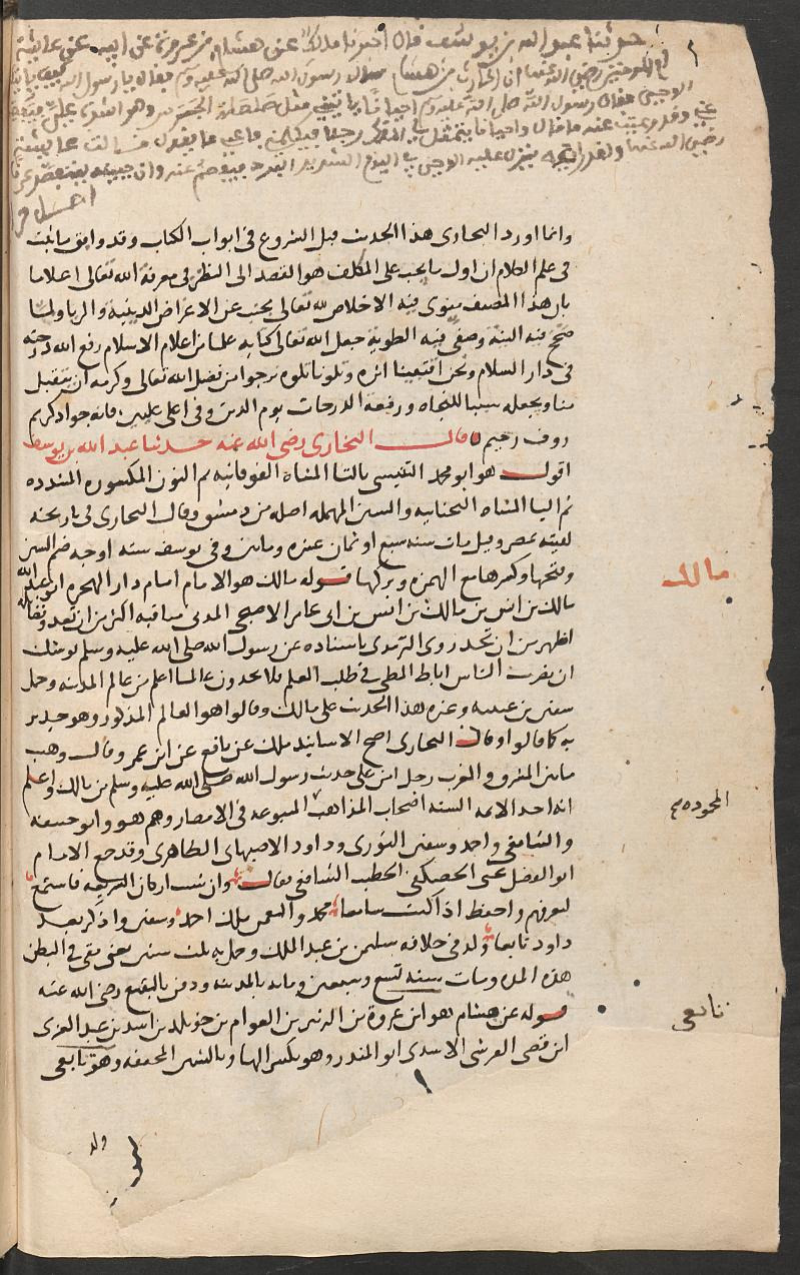 حدثنا عبد الله بن يوسف قال اخبرنا مالك عن هشام بن عروة عن ابيه عن عايشة
ام المومنين رضي الله عنها ان الحارث بن هشام سال رسول الله صلى الله عليه وسلم فقال يا رسول الله كيف ياتيك
الوحي فقال رسول الله صلى الله عليه وسلم احيانا ياتيني مثل صلصلة الجرس وهو اشده علي فيفصم
عني وقد وعيت عنه ما قال واحيانا يتمثل لي الملك رجلا فيكلمني فاعي ما يقول قالت عايشة
رضي الله عنها ولقد رايته ينزل عليه الوحي في اليوم الشديد البرد فيفصم عنه وان جبينه ليتفصد عرقا
وانما اورد البخارى هذا الحديث قبل الشروع فى ابواب الكتاب وقد وافق ما ثبت
فى علم الكلام ان اول ما يجب على المكلف هو القصد الى النظر فى معرفة الله تعالى اعلاما
بان هذا المصنف ينوى فيه الاخلاص لله تعالى يجنب عن الاعراض الدينية والريا ولما
صح فيه النية وصفى فيه الطوية جعل الله تعالى كتابه علما من اعلام الاسلام رفع الله درجته
فى دار السلام ونحن اقتفينا اثره وتلونا تلوه نرجوا من فضل الله تعالى وكرمه ان يتقبل
منا ويجعله سببا للنجاه ورفعة الدرجات يوم الدين وفى اعلى عليين فانه جواد كريم
روف رحيم قال البخارى رضى الله عنه حدثنا عبد الله بن يوسف
اقول هو ابو محمد التنيسى بالتا المثناه الفوقانيه ثم النون المكسوره المشدده
ثم اليا المثناه التحتانيه والسين المهمله اصله من دمشق وقال البخارى فى تاريخه
لقيته بمصر وقيل مات سنه سبع او ثمان عشره وماتين وفى يوسف سته اوجه ضم السين
وفتحها وكسرها مع الهمزه وتركها قوله مالك هو الامام امام دار الهجره ابو عبد الله
مالك
مالك بن انس بن مالك بن انس بن ابى عامر الاصبحى المدنى مناقبه اكثر من ان تعد وفضائله
اظهر من ان تحد روى الترمذى باسناده عن رسول الله صلى الله عليه وسلم يوشك
ان يضرب الناس اباط المطى فى طلب العلم فلا يجدون عالما اعلم من عالم المدينه وحمل
سفين بن عيينه وغيره هذا الحديث على مالك وقالوا هو العالم المذكور وهو جدير
به كما قالوا وقال البخارى اصح الاسانيد ملك عن نافع عن ابن عمر وقال وهب
ما بين المشرق والمغرب رجل امن على حديث رسول الله صلى الله عليه وسلم من مالك واعلم
انه احد الايمه السته اصحاب المذاهب المتبوعه فى الامصار وهم هو وابو حنيفه
والشافعى واحمد وسفين الثورى وداود الاصبهانى الظاهرى وقد جمع الامام
ابو الفضل يحيى الحصكفى الخطيب الشافعى فقال وان شيت اركان الشريعه فاستمع
لتعرفهم واحفظ اذا كنت سامعا محمد والنعمن ملك احمد وسفين واذكر بعد
داود تابعا ولد فى خلافه سليمن بن عبد الملك وحمل به ثلث سنين يعنى بقى فى البطن
هذه المده ومات سنه تسع وسبعين ومايه بالمدينه ودفن بالبقيع رضى الله عنه
قوله عن هشام هو ابن عروة بن الزبير بن العوام بن خويلد بن اسد بن عبد العزى
تابعى
ابن قصى القرشى الاسدى ابو المنذر وهو بكسر الها وبالشين المخففه وهو تابعى
ولد